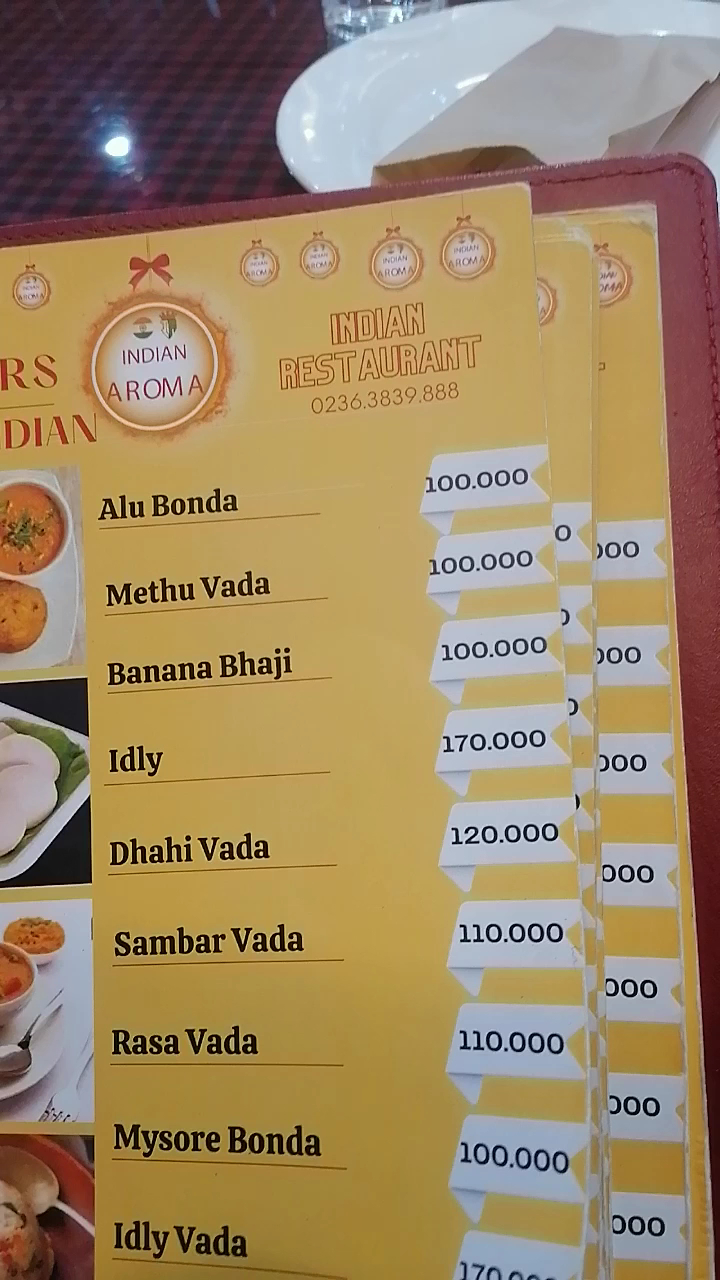 INDIAN
AROMA
INDIAN
AROMA
INDIAN
AROMA
INDIAN
AROMA
INDIAN
AROMA
INDIAN
AROMA
RS
DIAN
INDIAN
RESTAURANT
0236.3839.888
Alu Bonda 100.000
Methu Vada 100.000
Banana Bhaji 100.000
Idly 170.000
Dhahi Vada 120.000
Sambar Vada 110.000
Rasa Vada 110.000
Mysore Bonda 100.000
Idly Vada 170.000
000
000
000
000
000
000
000